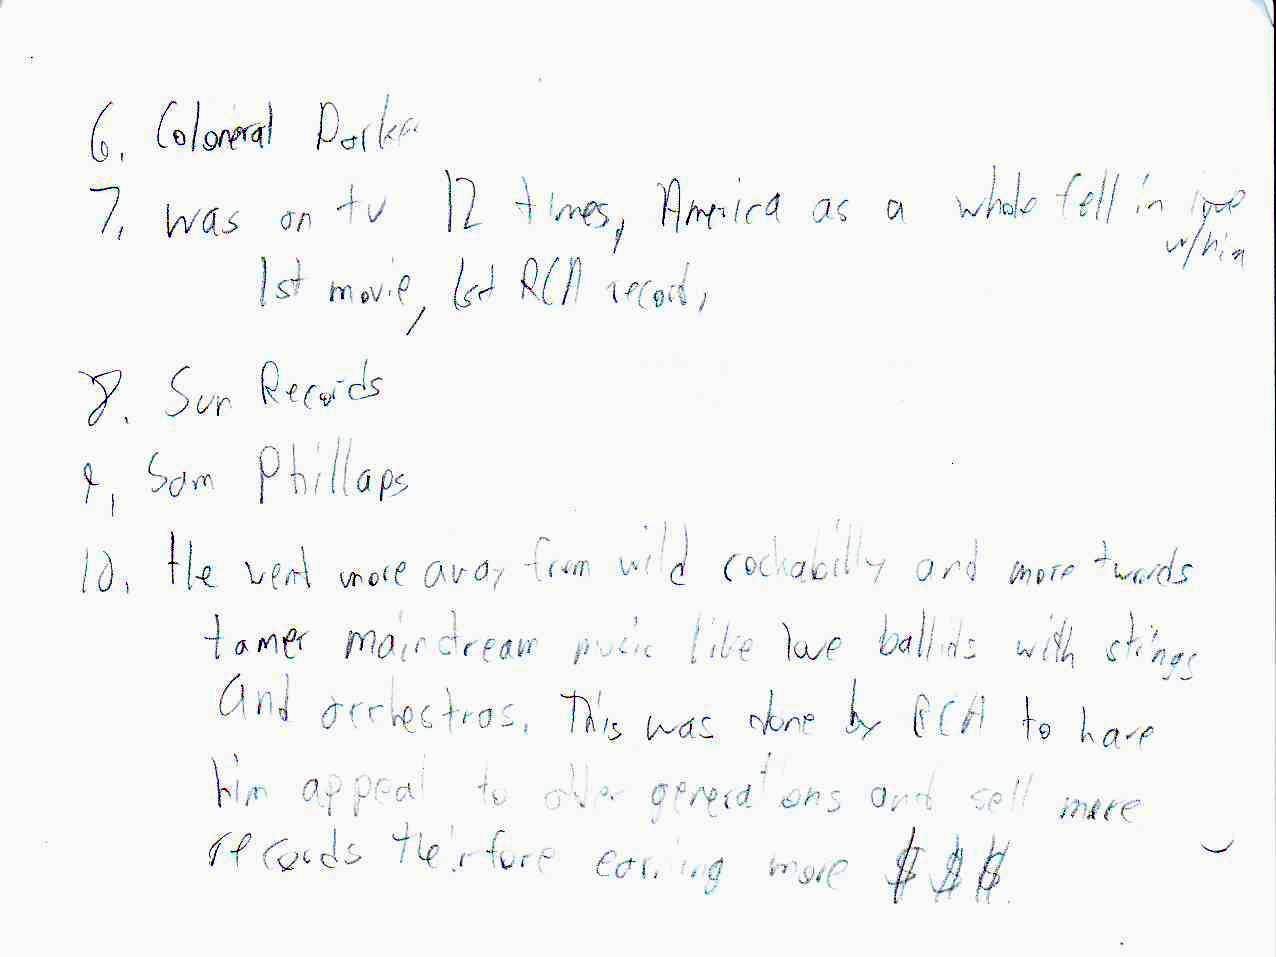 6. Coloneral Parker
7. was on tv 12 times, America as a whole fell in love
w/him
1st movie, 1st RCA record,
8. Sun Records
9, Sam Phillaps
10. He went more away from wild rockabilly and more twords
tamer mainstream music like love ballids with strings
and orchestras. This was done by RCA to have
him appeal to older generations and sell more
records theirfore earning more $$$